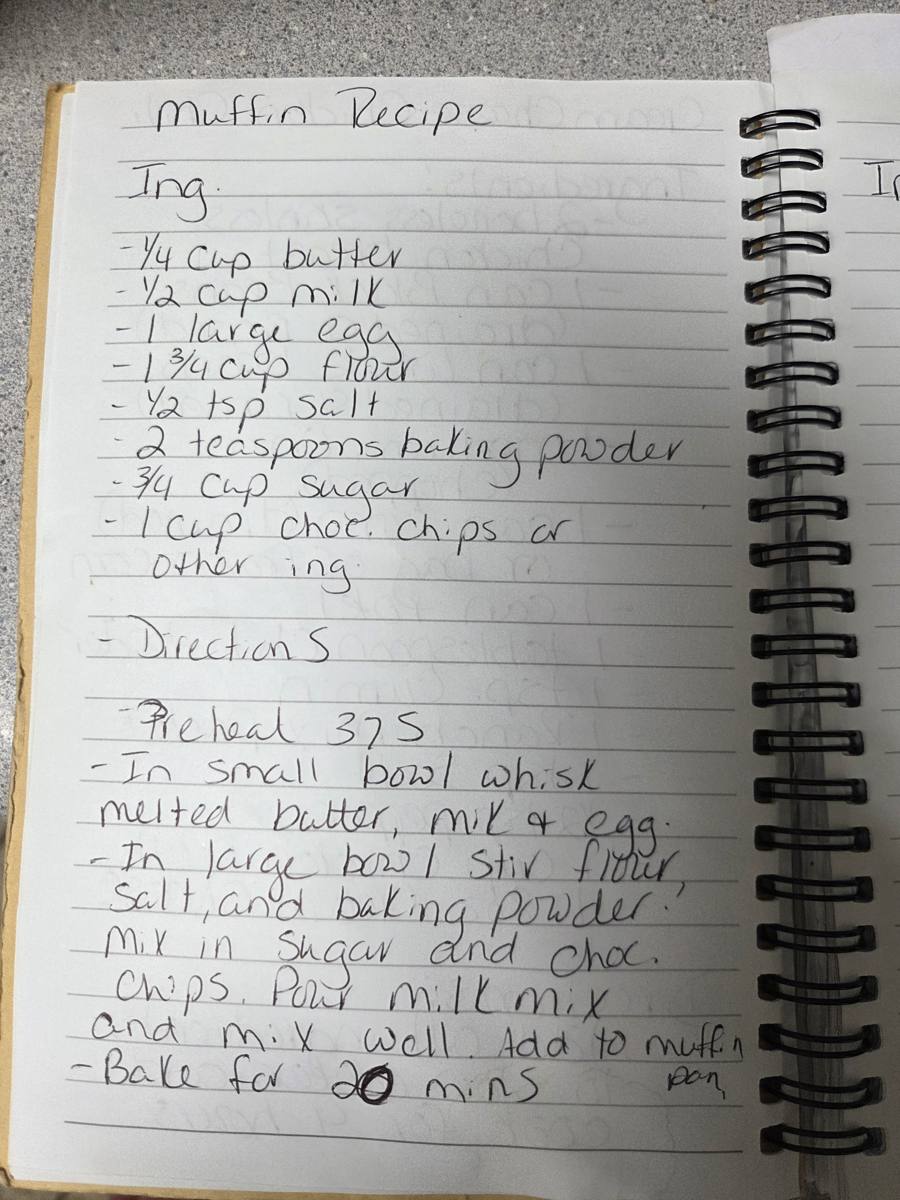 Muffin Recipe
Ing.
- 1/4 cup butter
- 1/2 cup milk
- 1 large egg
- 1 3/4 cup flour
- 1/2 tsp salt
- 2 teaspoons baking powder
- 3/4 cup sugar
- 1 cup choc. chips or
other ing.
- Directions
- Preheat 375
- In small bowl whisk
melted butter, milk & egg.
- In large bowl stir flour,
salt, and baking powder.
Mix in sugar and choc.
chips. Pour milk mix
and mix well. Add to muffin
pan
- Bake for 20 mins